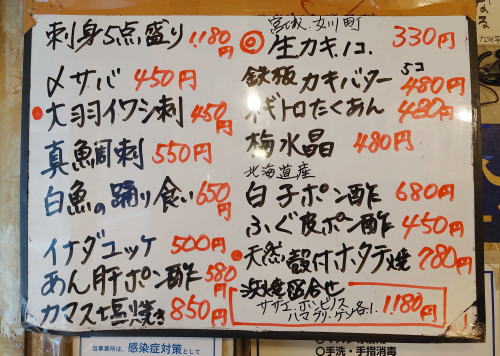 刺身5点盛り 1,180円
〆サバ 450円
大羽イワシ刺 450円
真鯛刺 550円
白魚の踊り食い 650円
イナダユッケ 500円
あん肝ポン酢 580円
カマス塩焼き 850円
宮城、女川町
生カキ1コ 330円
鉄板カキバター 5コ 480円
ネギトロたくあん 480円
梅水晶 480円
北海道産
白子ポン酢 680円
ふぐ皮ポン酢 450円
天然殻付ホタテ焼 780円
浜焼盛合せ
サザエ、ホンビノス
ハマグリ、ゲソ各1、 1,180円
当事業所は、感染症対策として
〇手洗・手指消毒